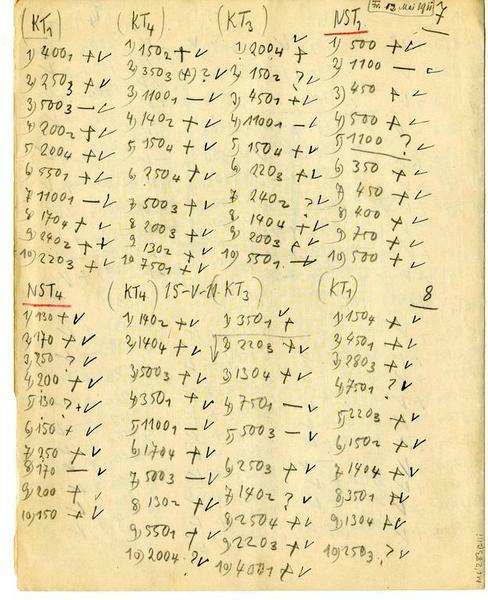 (KT1) (KT4) (KT3) NST1 Fr. 13 Mai 1911 7
1) 4001 + ✓ 1) 1502 + ✓ 1) 2004 + ✓ 1) 500 + ✓
2) 2503 + ✓ 2) 3503 (+)? ✓ 2) 1502 ? ✓ 2) 1100 — ✓
3) 5003 — ✓ 3) 11001 — ✓ 3) 4501 + ✓ 3) 450 + ✓
4) 2002 + ✓ 4) 1402 + ✓ 4) 11001 — ✓ 4) 500 + ✓
5) 2004 + ✓ 5) 1504 + ✓ 5) 1504 + ✓ 5) 1100 ? ✓
6) 5501 + ✓ 6) 2504 + ✓ 6) 2203 + ✓ 6) 350 + ✓
7) 11001 — ✓ 7) 5003 + ✓ 7) 2402 ? ✓ 7) 450 + ✓
8) 1704 + ✓ 8) 2003 + ✓ 8) 1404 + ✓ 8) 400 + ✓
9) 2402 + ✓ 9) 1302 + ✓ 9) 2003 + ✓ 9) 750 + ✓
10) 2203 + ✓ 10) 7501 + ✓ 10) 5501 — ✓ 10) 500 + ✓
NST4 (KT4) 15-V-11 (KT3) (KT1) 8
1) 130 + ✓ 1) 1402 + ✓ 1) 3501 + ✓ 1) 1504 + ✓
2) 170 + ✓ 2) 1404 + ✓ 2) 2203 + ✓ 2) 4501 + ✓
3) 250 ? ✓ 3) 5003 + ✓ 3) 1304 + ✓ 3) 2803 + ✓
4) 200 + ✓ 4) 3501 + ✓ 4) 7501 — ✓ 4) 7501 ? ✓
5) 130 ? + ✓ 5) 11001 — ✓ 5) 5003 — ✓ 5) 2203 + ✓
6) 150 + ✓ 6) 1704 + ✓ 6) 2503 + ✓ 6) 1502 + ✓
7) 250 + ✓ 7) 5003 — ✓ 7) 1402 ? ✓ 7) 1404 + ✓
8) 170 — ✓ 8) 1302 + ✓ 8) 2504 + ✓ 8) 3501 + ✓
9) 200 + ✓ 9) 5501 + ✓ 9) 2203 + ✓ 9) 1304 + ✓
10) 150 + ✓ 10) 2004 ? ✓ 10) 4001 + ✓ 10) 2503 ? ✓